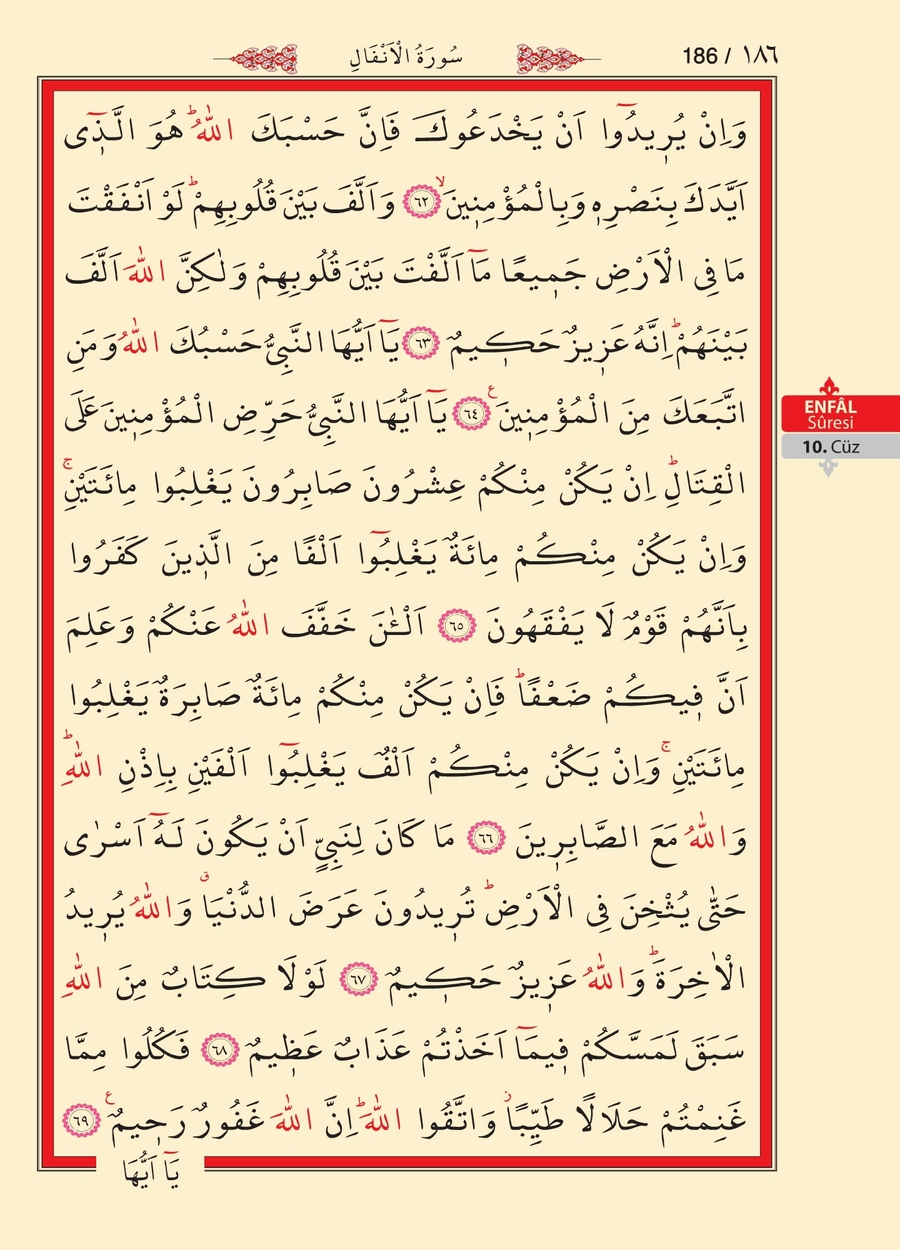 186 / ١٨٦ سُورَةُ الْاَنْفَالِ
وَاِنْ يُر۪يدُٓوا اَنْ يَخْدَعُوكَ فَاِنَّ حَسْبَكَ اللّٰهُۜ هُوَ الَّـذ۪ٓى
اَيَّدَكَ بِنَصْرِه۪ وَبِالْمُؤْمِن۪ينَۙ ﴿٦٢﴾ وَاَلَّفَ بَيْنَ قُلُوبِهِمْۜ لَوْ اَنْفَقْتَ
مَا فِى الْاَرْضِ جَم۪يعًا مَٓا اَلَّفْتَ بَيْنَ قُلُوبِهِمْ وَلٰكِنَّ اللّٰهَ اَلَّفَ
بَيْنَهُمْۜ اِنَّهُ عَز۪يزٌ حَك۪يمٌ ﴿٦٣﴾ يَٓا اَيُّهَا النَّبِىُّ حَسْبُكَ اللّٰهُ وَمَنِ
اتَّبَعَكَ مِنَ الْمُؤْمِن۪ينَ۟ ﴿٦٤﴾ يَٓا اَيُّهَا النَّبِىُّ حَرِّضِ الْمُؤْمِن۪ينَ عَلَى
الْقِتَالِۜ اِنْ يَكُنْ مِنْكُمْ عِشْرُونَ صَابِرُونَ يَغْلِبُوا مِائَتَيْنِۚ
وَاِنْ يَكُنْ مِنْكُمْ مِائَةٌ يَغْلِبُٓوا اَلْفًا مِنَ الَّذ۪ينَ كَفَرُوا
بِاَنَّهُمْ قَوْمٌ لَا يَفْقَهُونَ ﴿٦٥﴾ اَلْـٰٔنَ خَفَّفَ اللّٰهُ عَنْكُمْ وَعَلِمَ
اَنَّ ف۪يكُمْ ضَعْفًاۜ فَاِنْ يَكُنْ مِنْكُمْ مِائَةٌ صَابِرَةٌ يَغْلِبُوا
مِائَتَيْنِۚ وَاِنْ يَكُنْ مِنْكُمْ اَلْفٌ يَغْلِبُٓوا اَلْفَيْنِ بِاِذْنِ اللّٰهِۜ
وَاللّٰهُ مَعَ الصَّابِر۪ينَ ﴿٦٦﴾ مَا كَانَ لِنَبِىٍّ اَنْ يَكُونَ لَهُٓ اَسْرٰى
حَتّٰى يُثْخِنَ فِى الْاَرْضِۜ تُر۪يدُونَ عَرَضَ الدُّنْيَاۗ وَاللّٰهُ يُر۪يدُ
الْاٰخِرَةَۜ وَاللّٰهُ عَز۪يزٌ حَك۪يمٌ ﴿٦٧﴾ لَوْلَا كِتَابٌ مِنَ اللّٰهِ
سَبَقَ لَمَسَّكُمْ ف۪يمَٓا اَخَذْتُمْ عَذَابٌ عَظ۪يمٌ ﴿٦٨﴾ فَكُلُوا مِمَّا
غَنِمْتُمْ حَلَالًا طَيِّبًاۘ وَاتَّقُوا اللّٰهَۜ اِنَّ اللّٰهَ غَفُورٌ رَح۪يمٌ۟ ﴿٦٩﴾
يَٓا اَيُّهَا
ENFÂL
Sûresi
10. Cüz